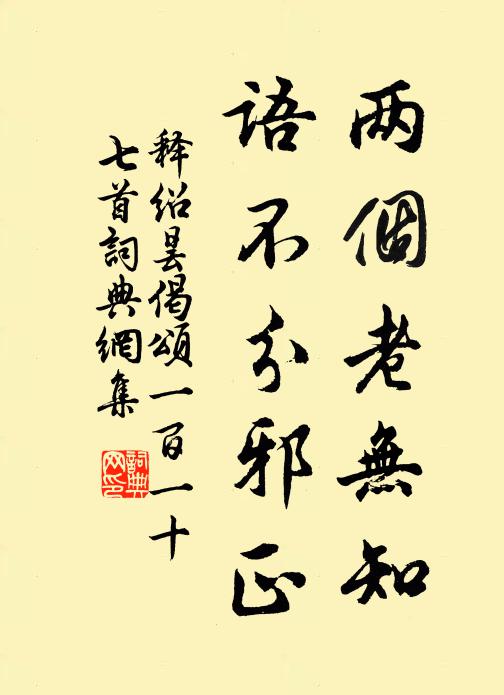 两個老無知
語不分邪正
释绍昙偈頌一百一十
七首詞典網集
詞典网印